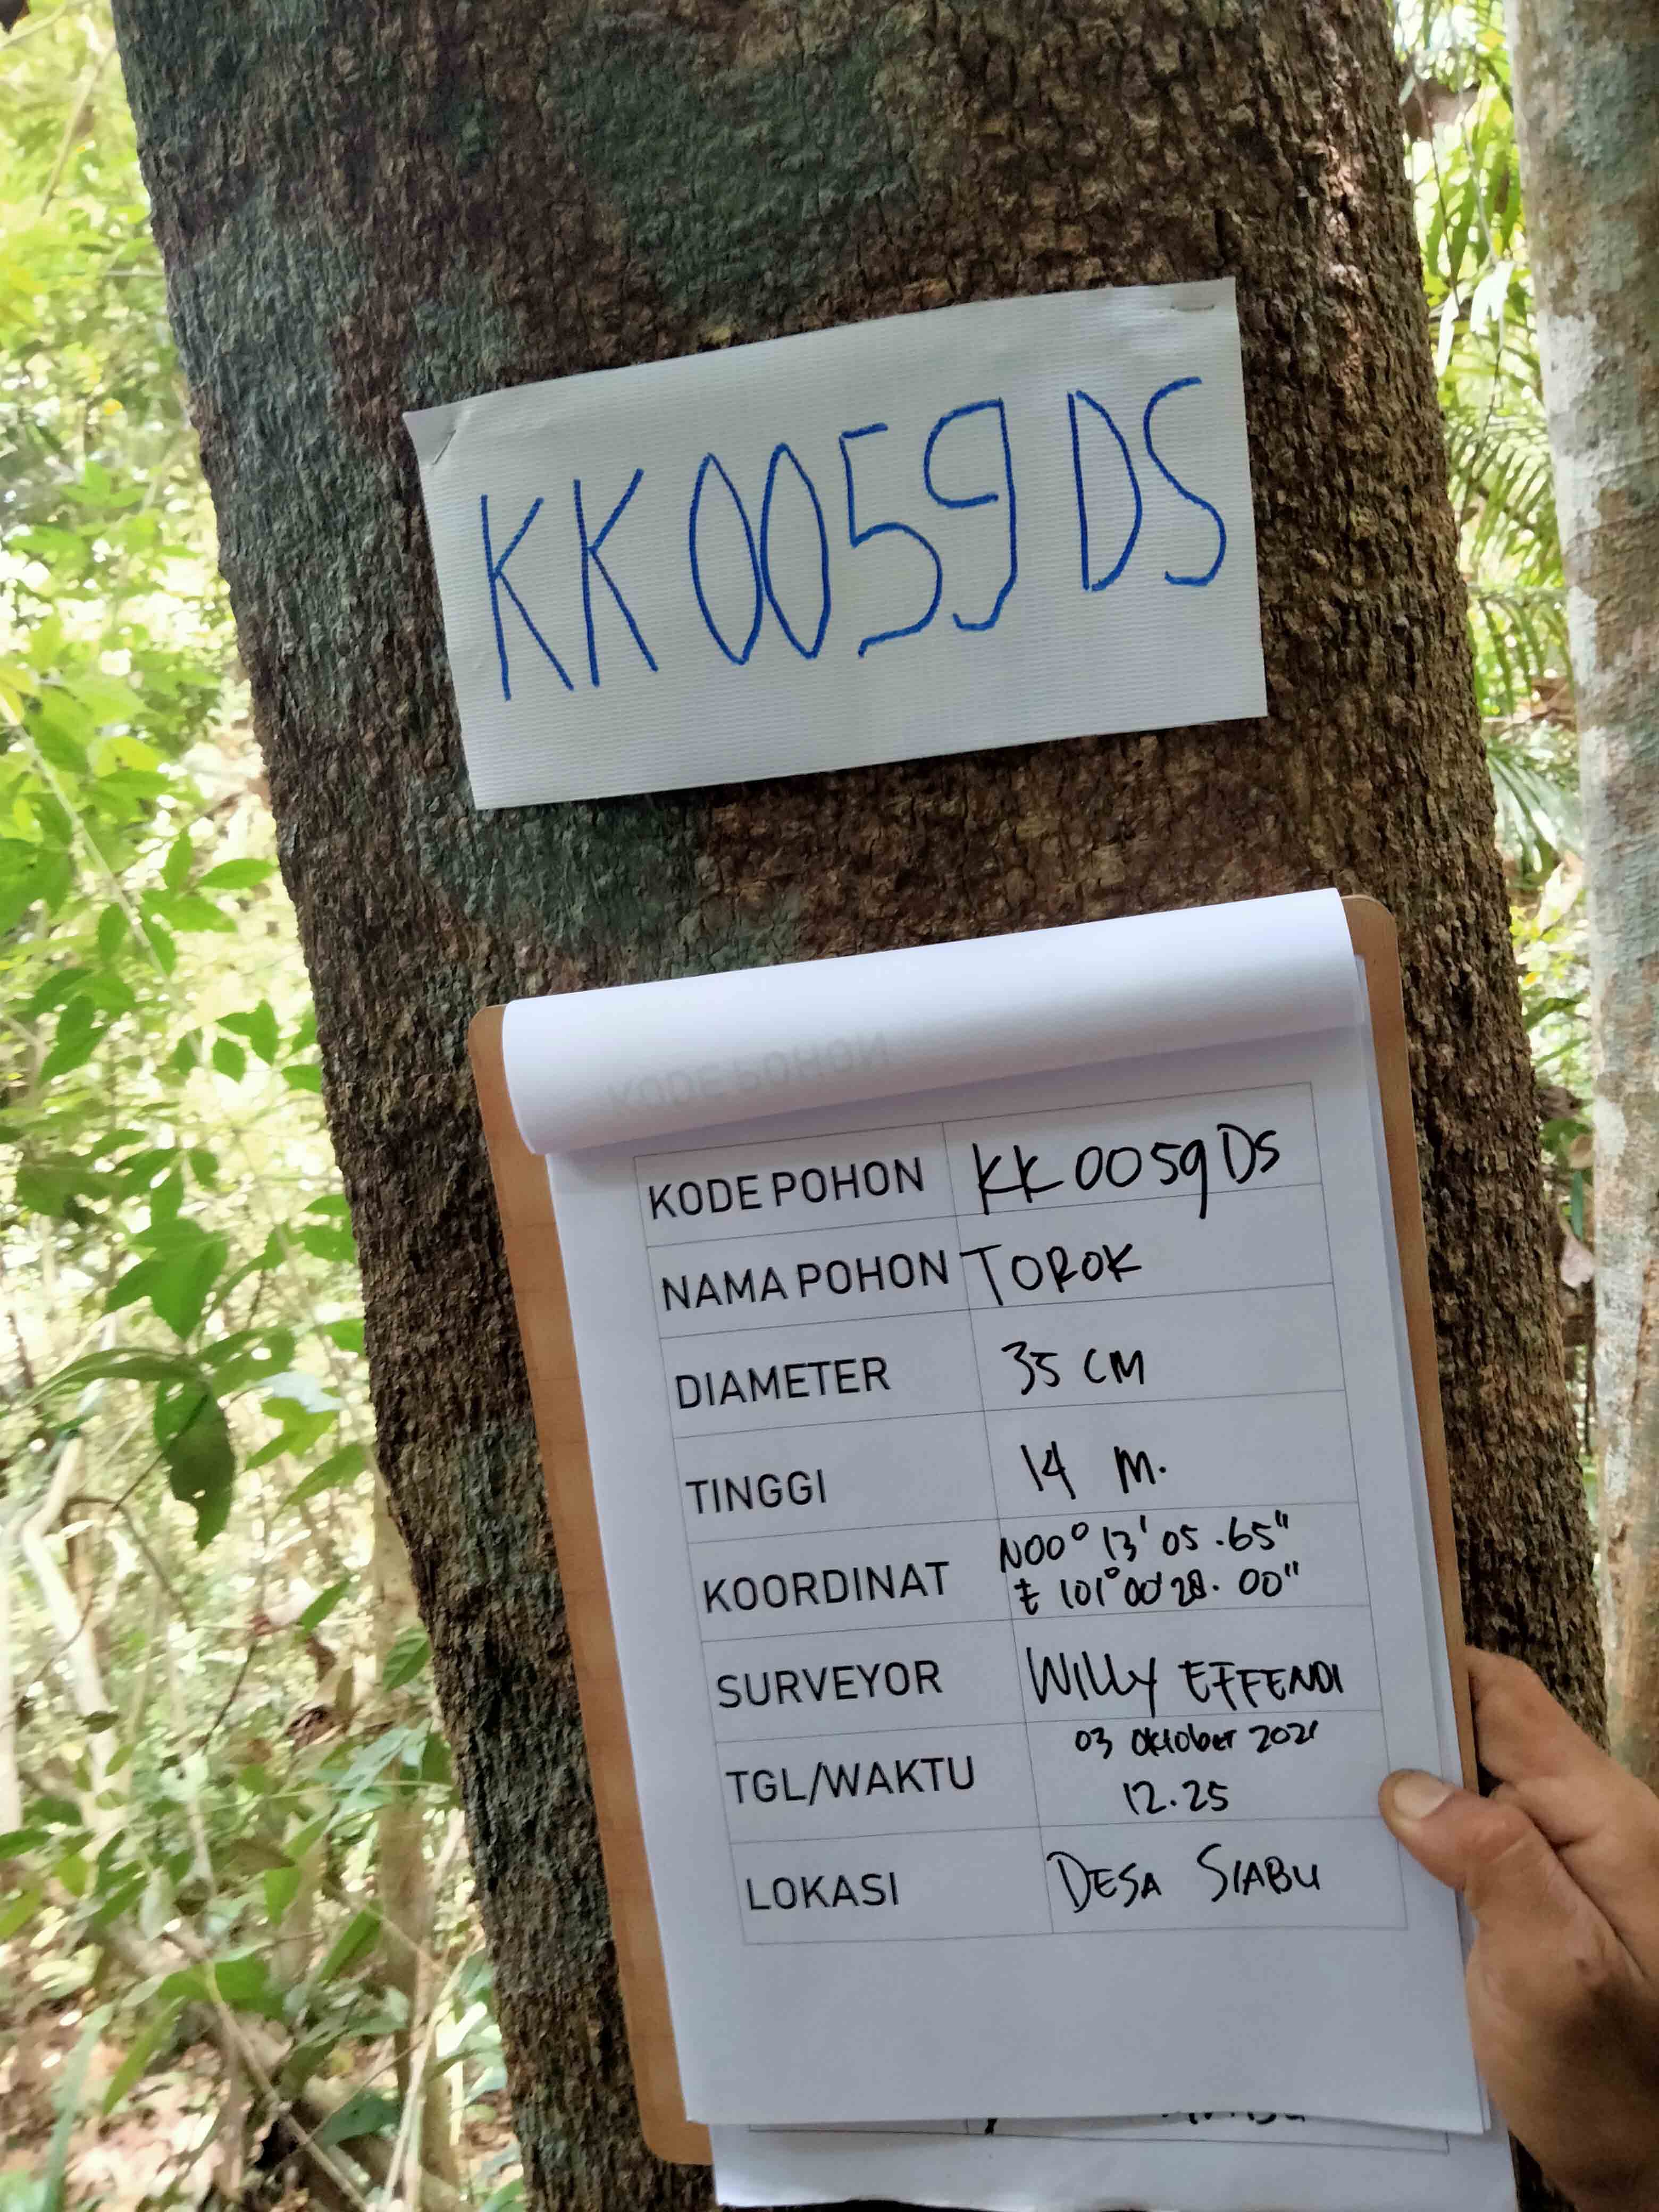 KK0059 DS
KODE POHON
KODE POHON KK0059DS
NAMA POHON TOROK
DIAMETER 35 CM
TINGGI 14 M.
KOORDINAT N00° 13' 05.65"
E 101° 00' 28.00"
SURVEYOR WILLY EFFENDI
TGL/WAKTU 03 Oktober 2021
12.25
LOKASI DESA SIABU